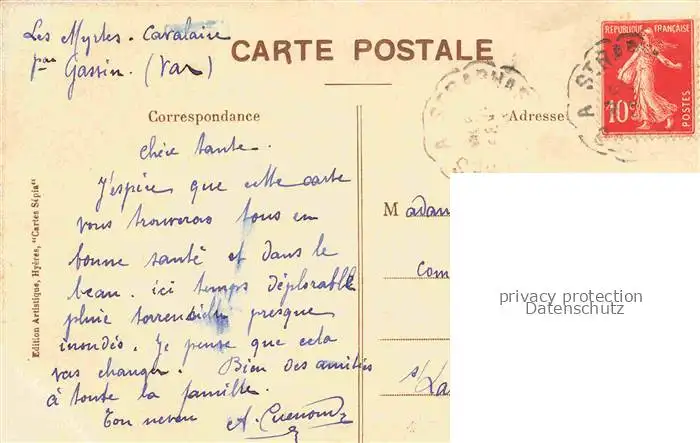 Les Myrtes. Cavalaire
par Gassin. (Var)
CARTE POSTALE
Correspondance
Adresse
RÉPUBLIQUE FRANÇAISE
10c
POSTES
A ST RAPHA
chère tante.
J'espère que cette carte
vous trouveras tous en
bonne santé et dans le
beau. ici temps déplorable
pluie torrentielle presque
inondés. Je pense que cela
vas changer. Bien des amitiés
à toute la famille.
Ton neveu A. Cuenoud
Madam
com
s/La
Edition Artistique, Hyères, "Cartes Sépia"
privacy protection
Datenschutz